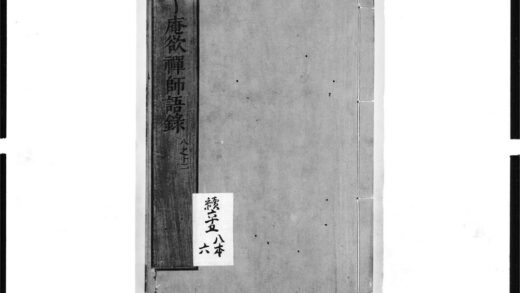 了庵欲禪師語錄 八之十二
續立五
八本
六